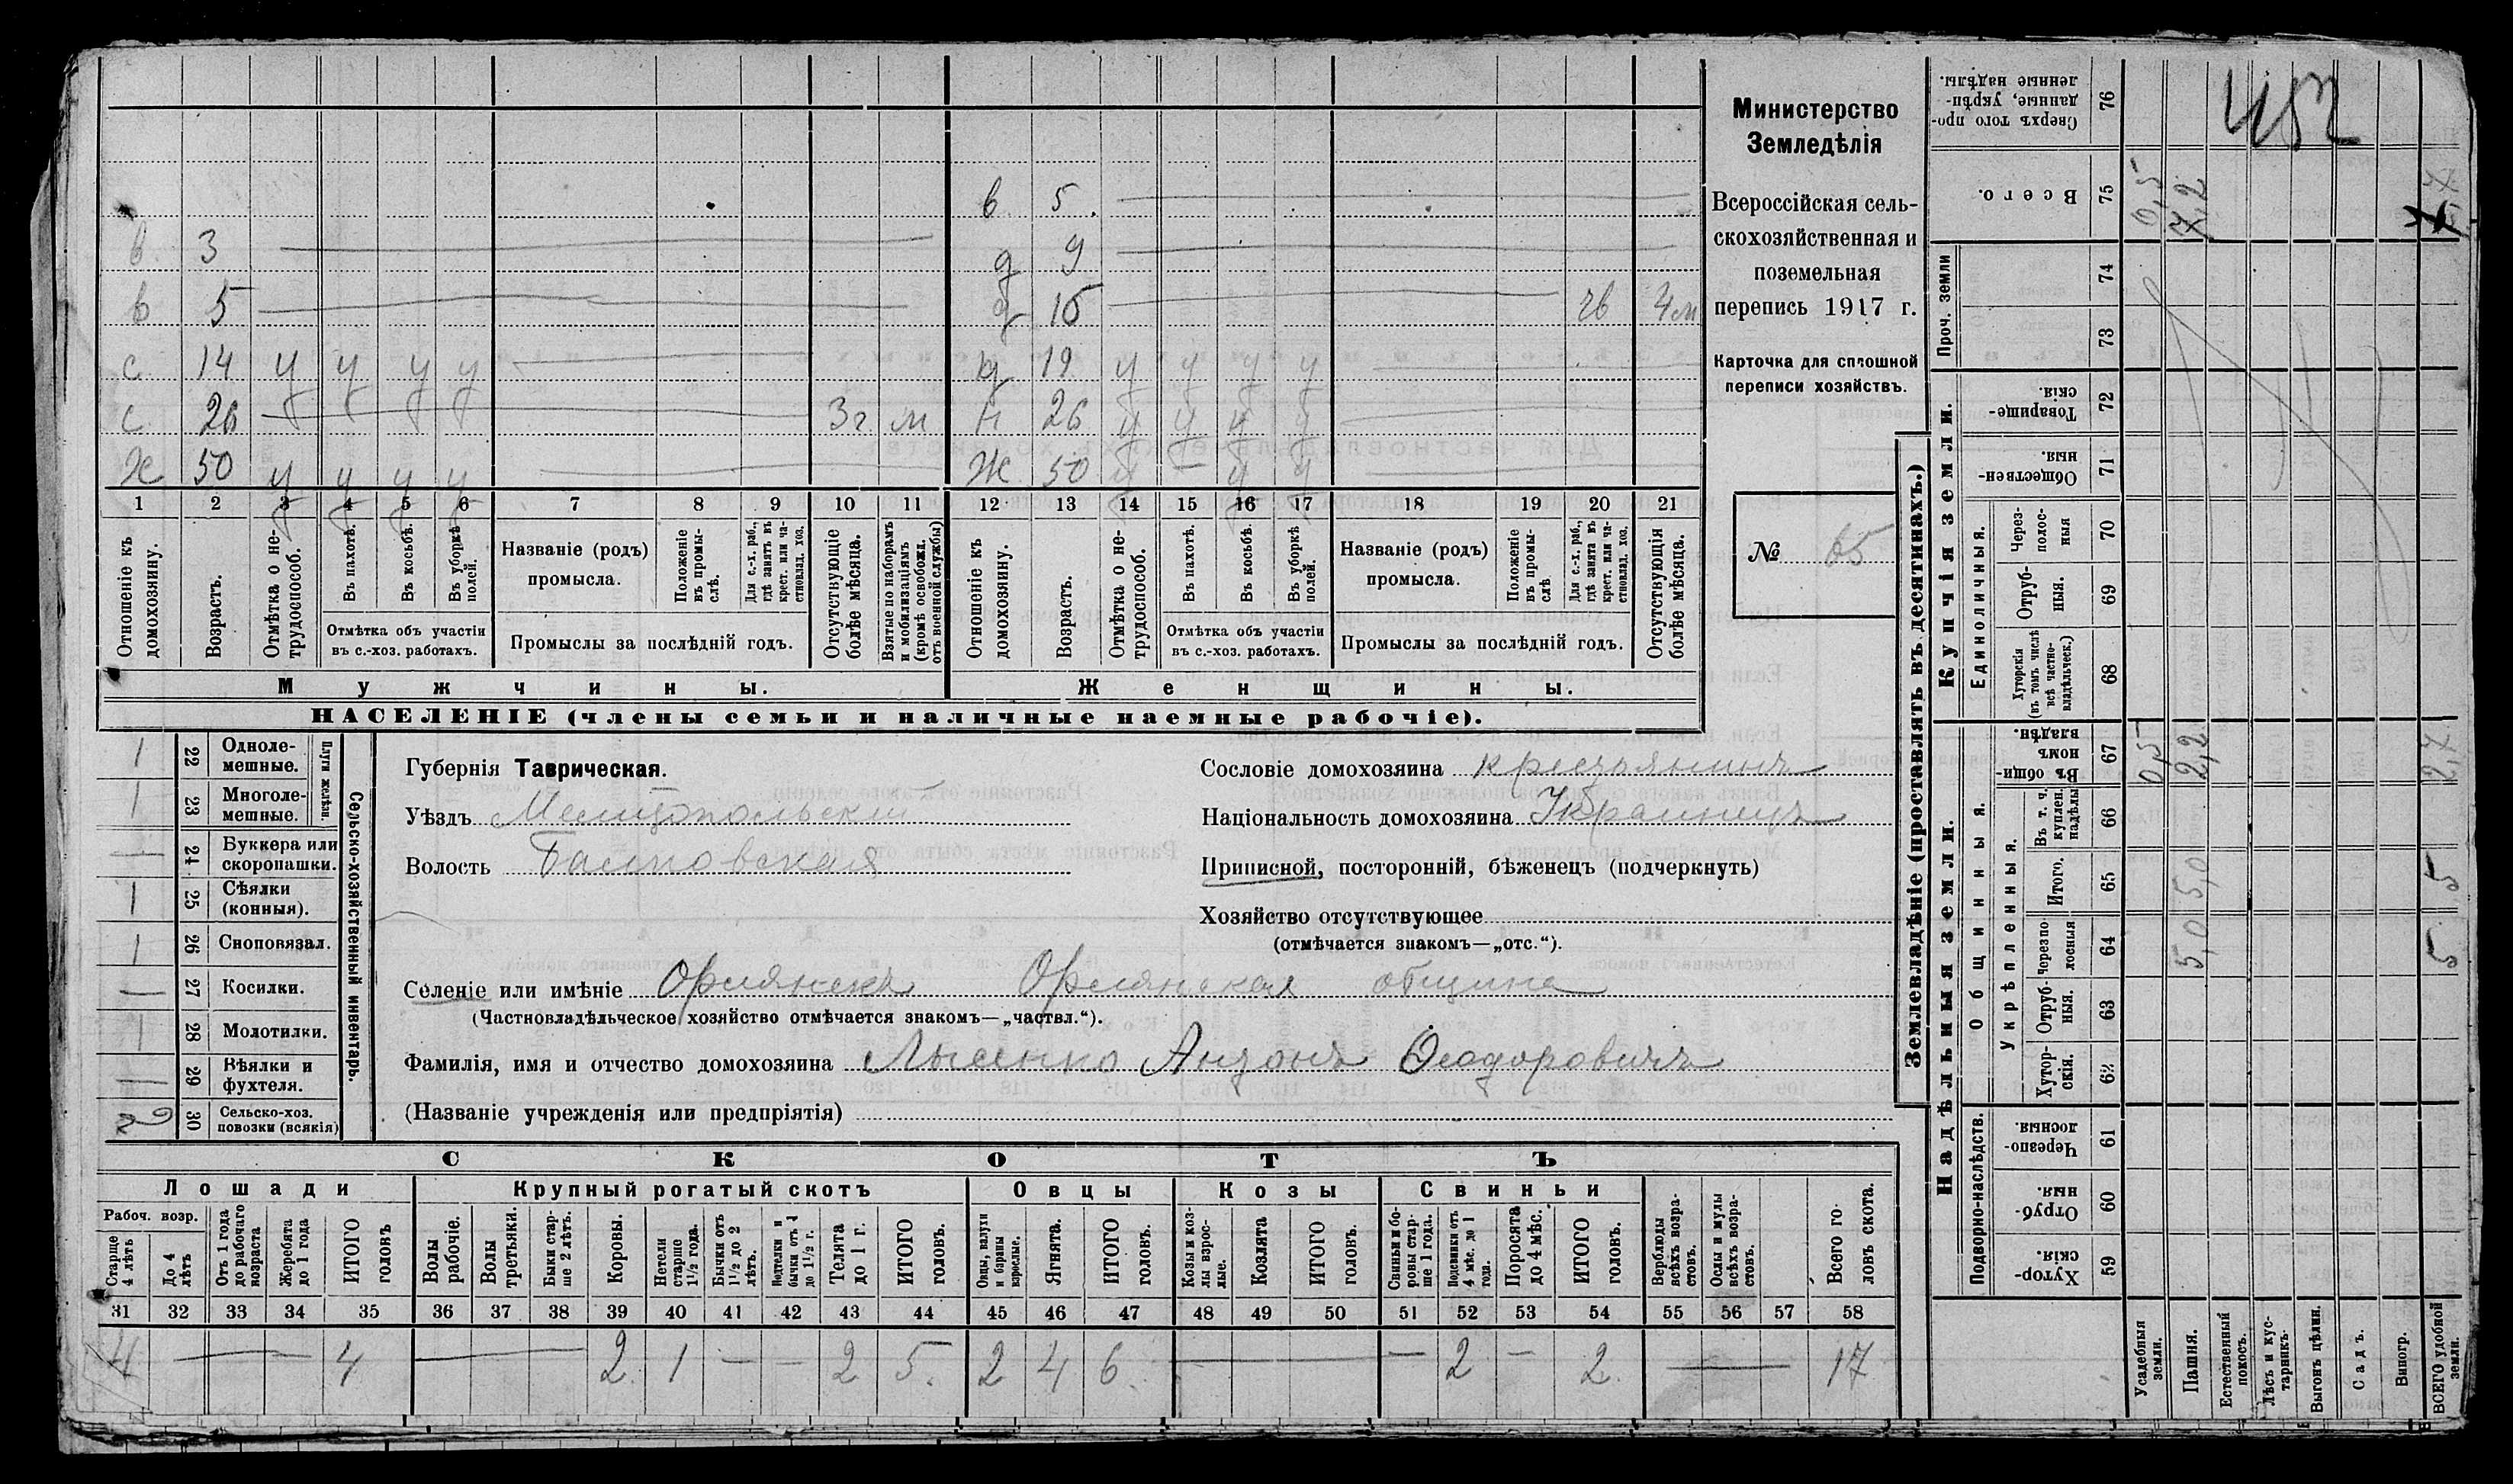 в 5.
в. 3 д 9
в 5 д 16 4м
с 14 у у у у д 19 у у у у
с 26 3г. м н 26 у у у у
Ж 50 у у у у Ж 50 у — у у
1 2 3 4 5 6 7 8 9 10 11 12 13 14 15 16 17 18 19 20 21
Отношеніе къ домохозяину.
Возрастъ.
Отмѣтка о нетрудоспособ.
Въ пахотѣ.
Въ косьбѣ.
Въ уборкѣ полей.
Отмѣтка объ участіи
въ с.-хоз. работахъ.
Названіе (родъ)
промысла.
Положеніе въ промыслѣ.
Для с.-х. раб., гдѣ занятъ въ крест. или частновлад. хоз.
Промыслы за послѣдній годъ.
Отсутствующіе болѣе мѣсяца.
Взятые по наборамъ и мобилизаціямъ (кромѣ освобожд. отъ военной службы)
Отношеніе къ домохозяину.
Возрастъ.
Отмѣтка о нетрудоспособ.
Въ пахотѣ.
Въ косьбѣ.
Въ уборкѣ полей.
Отмѣтка объ участіи
въ с.-хоз. работахъ.
Названіе (родъ)
промысла.
Положеніе въ промыслѣ.
Для с.-х. раб., гдѣ занята въ крест. или частновлад. хоз.
Промыслы за послѣдній годъ.
Отсутствующія болѣе мѣсяца.
Мужчины. Женщины.
НАСЕЛЕНІЕ (члены семьи и наличные наемные рабочіе).
Министерство
Земледѣлія
Всероссійская сель-
скохозяйственная и
поземельная
перепись 1917 г.
Карточка для сплошной
переписи хозяйствъ.
№ 65
Сельско-хозяйственный инвентарь.
Плуги желѣзн.
1 22 Одноле-
мешные.
1 23 Многоле-
мешные.
— 24 Буккера или
скоропашки.
1 25 Сѣялки
(конныя).
1 26 Сноповязал.
— 27 Косилки.
1 28 Молотилки.
— 29 Вѣялки и
фухтеля.
2 30 Сельско-хоз.
повозки (всякія)
Губернія Таврическая.
Уѣздъ Мелитопольскій
Волость
Сословіе домохозяина крестьянинъ
Національность домохозяина Украинецъ
Приписной, посторонній, бѣженецъ (подчеркнуть)
Хозяйство отсутствующее
(отмѣчается знакомъ—„отс.“).
Селеніе или имѣніе Орлянскъ Орлянская община
(Частновладѣльческое хозяйство отмѣчается знакомъ—„частвл.“).
Фамилія, имя и отчество домохозяина Лысенко Антонъ Ѳеодоровичъ
(Названіе учрежденія или предпріятія)
СКОТЪ
Лошади Крупный рогатый скотъ Овцы Козы Свиньи
Рабоч. возр.
Старше 4 лѣтъ
До 4 лѣтъ
Отъ 1 года до рабочаго возраста
Жеребята до 1 года
ИТОГО головъ
Волы рабочіе.
Волы третьяки.
Быки старше 2 лѣтъ.
Коровы.
Нетели старше 1½ года.
Бычки отъ 1½ до 2 лѣтъ.
Подтелки и бычки отъ 1 до 1½ г.
Телята до 1 г.
ИТОГО головъ.
Овцы, валухи и бараны взрослые.
Ягнята.
ИТОГО головъ.
Козы и козлы взрослые.
Козлята
ИТОГО головъ.
Свиньи и боровы старше 1 года.
Подсвинки отъ 4 мѣс. до 1 года.
Поросята до 4 мѣс.
ИТОГО головъ.
Верблюды всѣхъ возрастовъ.
Ослы и мулы всѣхъ возрастовъ.
Всего головъ скота.
31 32 33 34 35 36 37 38 39 40 41 42 43 44 45 46 47 48 49 50 51 52 53 54 55 56 57 58
4 — 4 — 2 1 — — 2 5. 2 4 6. — — 2 — 2 — 17
Землевладѣніе (проставлять въ десятинахъ.)
Надѣльныя земли. Купчія земли. Проч. земли
Подворно-наслѣдств.
Общинныя.
Укрѣпленныя.
Единоличныя.
Хуторскія. 59
Отрубныя. 60
Черезполосныя 61
Хуторскія. 62
Отрубныя. 63
Черезполосныя 64 5,0 5
Итого. 65 5,0 5
Въ т. ч. куплен. надѣлы 66
Въ общинномъ владѣн. 67 0,5 2,2 2,7
Хуторскія (въ томъ числѣ всѣ частновладѣльческ.) 68
Отрубныя. 69
Черезполосныя 70
Общественныя. 71
Товарищескія 72
73
74
Всего. 75 0,5 7,2
Сверхъ того проданные, укрѣпленные надѣлы. 76
452
Усадебныя земли.
Пашня.
Естественный покосъ.
Лѣсъ и кустарникъ.
Выгонъ цѣлин.
Садъ.
Виногр.
ВСЕГО удобной земли.